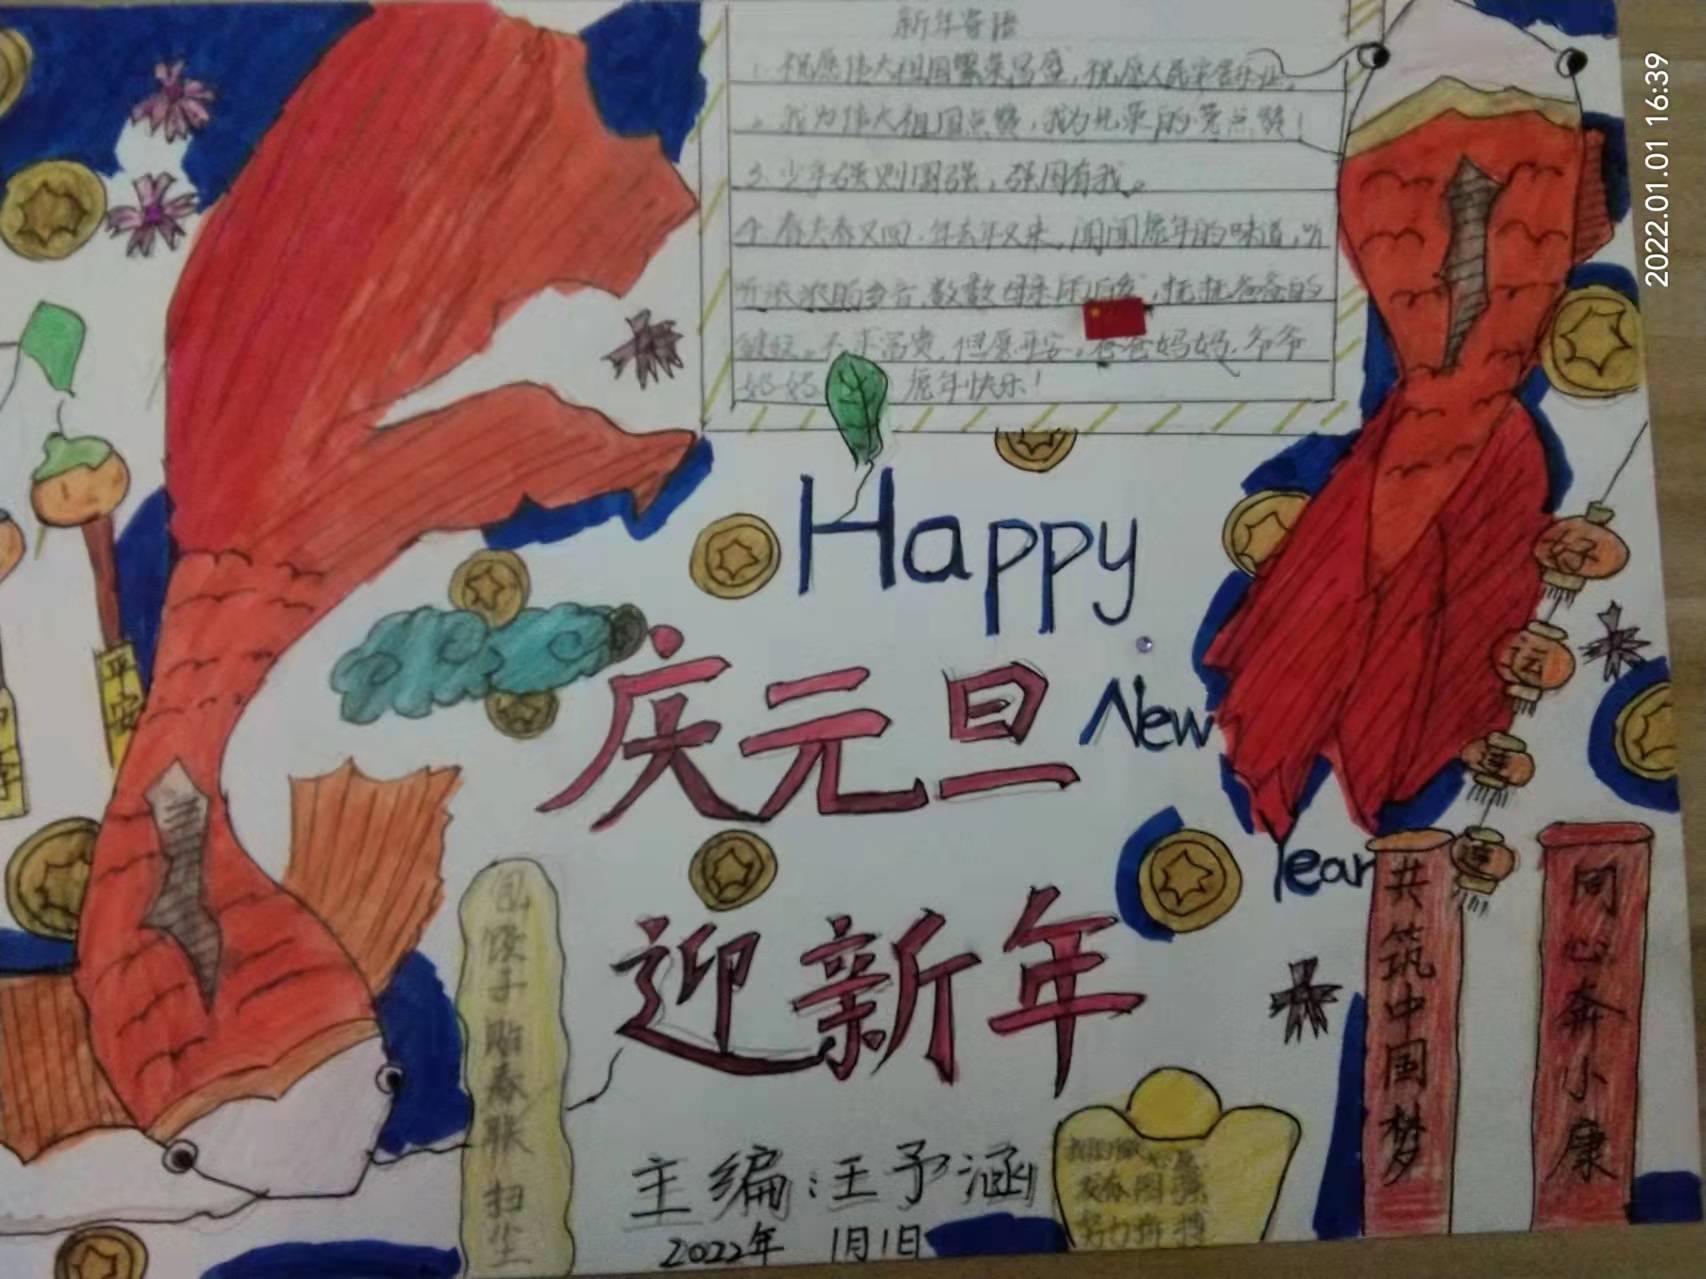 新年寄语
1. 祝愿伟大祖国繁荣昌盛，祝愿人民安居乐业。
。我为伟大祖国点赞，我为光荣的党点赞！
3. 少年强则国强，强国有我。
4. 春去春又回，年去年又来，闻闻虎年的味道，听
听浓浓的乡音，数数母亲的白发，
不求富贵，但愿平安，爸爸妈妈，爷爷
奶奶 虎年快乐！
Happy
庆元旦
New
Year
迎新年
好
运
连
连
平安
共筑中国梦
同心奔小康
包饺子贴春联 扫尘
主编：王予涵
2022年 1月1日
努力拼搏
2022.01.01 16:39